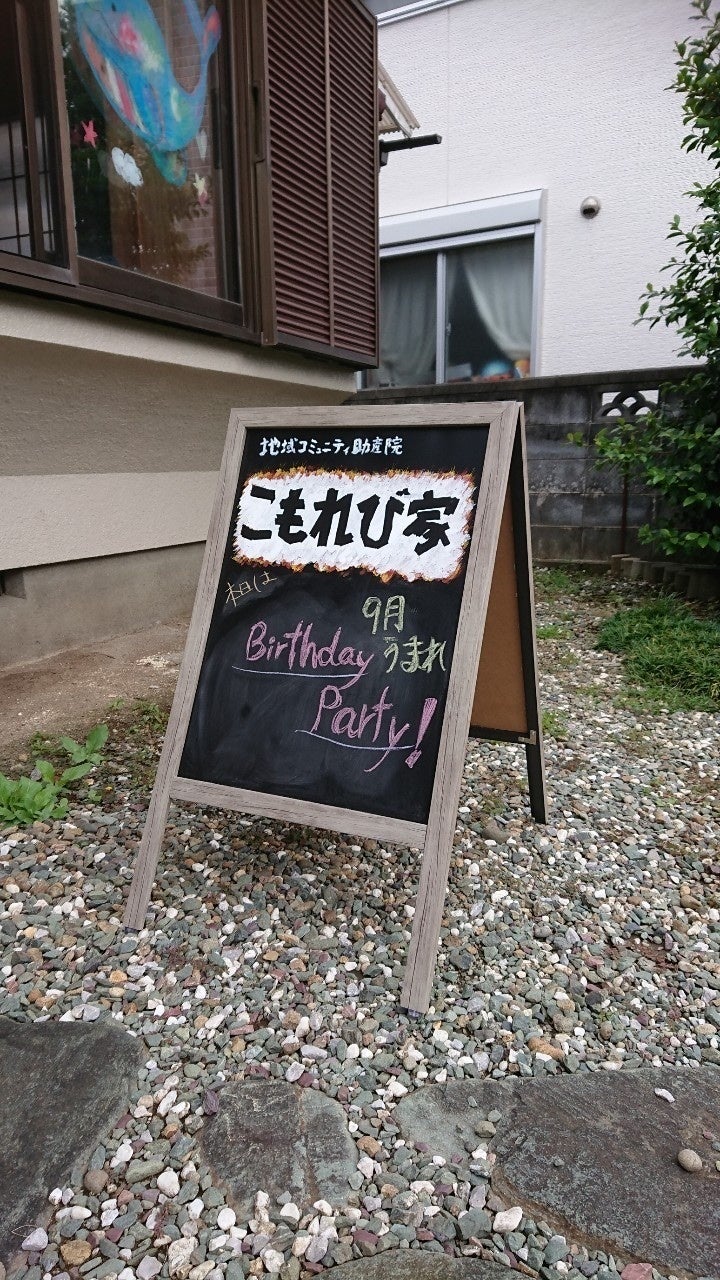 地域コミュニティ助産院
こもれび家
本日は
9月
うまれ
Birthday
Party!